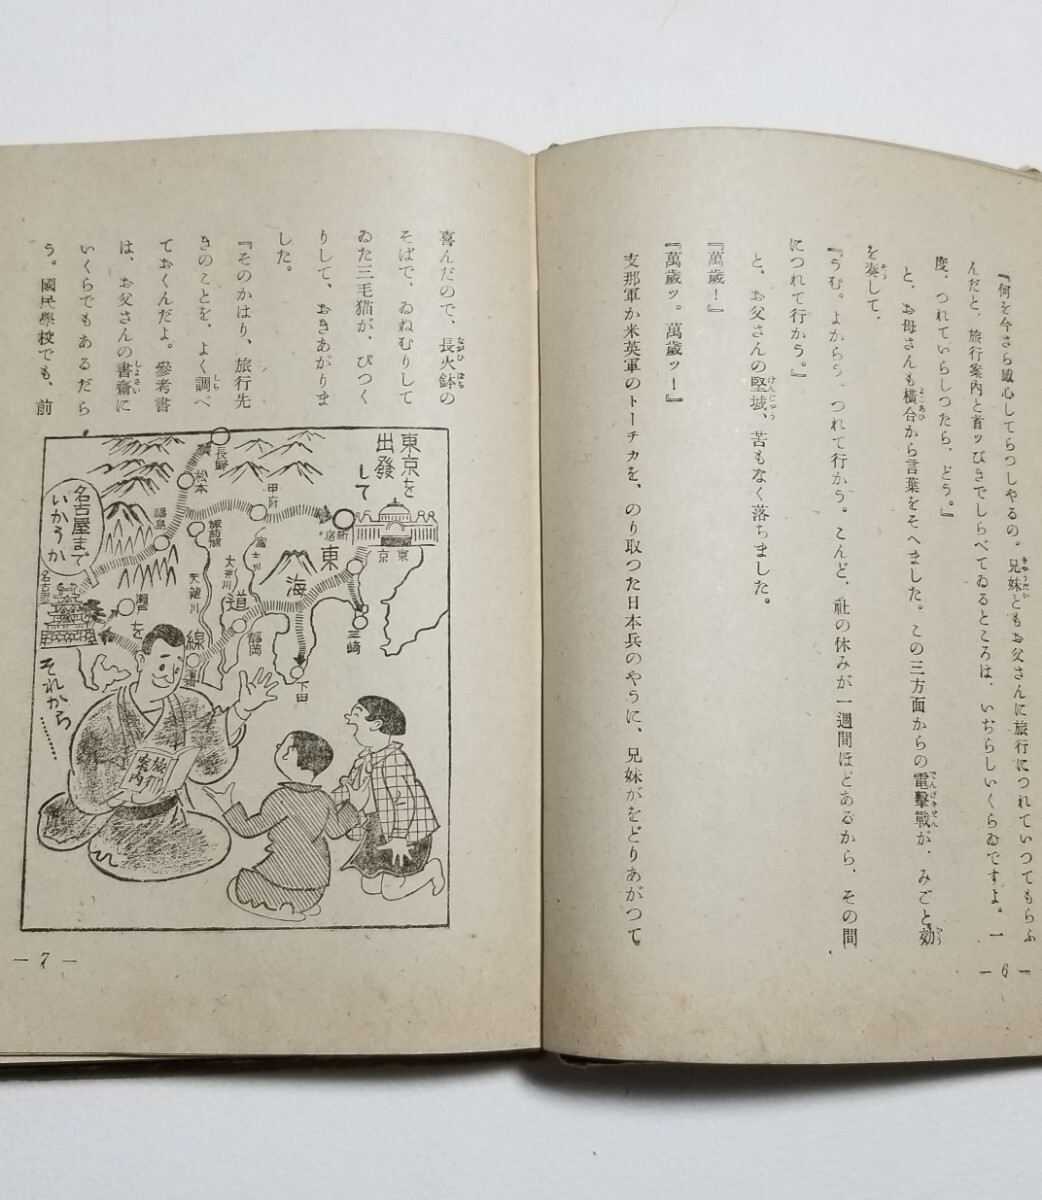 『何を今さら感心してらつしやるの。兄妹ともお父さんに旅行につれていつてもらふ
んだと、旅行案内と首ッぴきでしらべてゐるところは、いぢらしいくらゐですよ。一
度、つれていらしつたら、どう。』
と、お母さんも横合から言葉をそへました。この三方面からの電擊戰が、みごと効
を奏して、
『うむ。よからう。つれて行かう。こんど、社の休みが一週間ほどあるから、その間
につれて行かう。』
と、お父さんの堅城、苦もなく落ちました。
『萬歲！』
『萬歲ッ。萬歲ッ！』
支那軍か米英軍のトーチカを、のり取つた日本兵のやうに、兄妹がをどりあがつて
— 6 —
喜んだので、長火鉢の
そばで、ゐねむりして
ゐた三毛猫が、びつく
りして、おきあがりま
した。
『そのかはり、旅行先
きのことを、よく調べ
ておくんだよ。參考書
は、お父さんの書齋に
いくらでもあるだら
う。國民學校でも、前
東京を
出發
して
名古屋まで
いかうか
長野
松本
甲府
新宿
東京
福島
諏訪湖
富士川
大井川
天龍川
東海道線
名古屋
瀨戶
靜岡
三崎
下田
を
それから………
旅行
案內
— 7 —